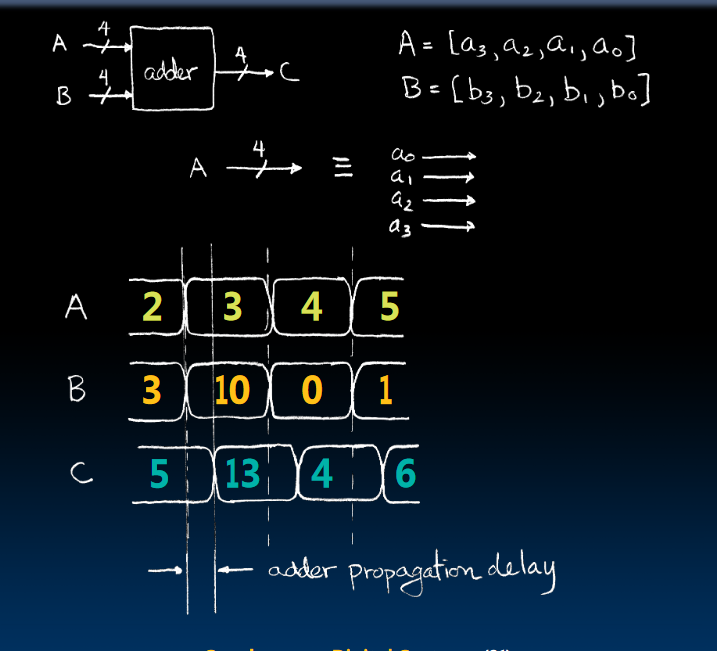 4
A
4
adder
4
C
B
A = [a3, a2, a1, a0]
B = [b3, b2, b1, b0]
A
4
≡
a0
a1
a2
a3
A 2 3 4 5
B 3 10 0 1
C 5 13 4 6
adder propagation delay